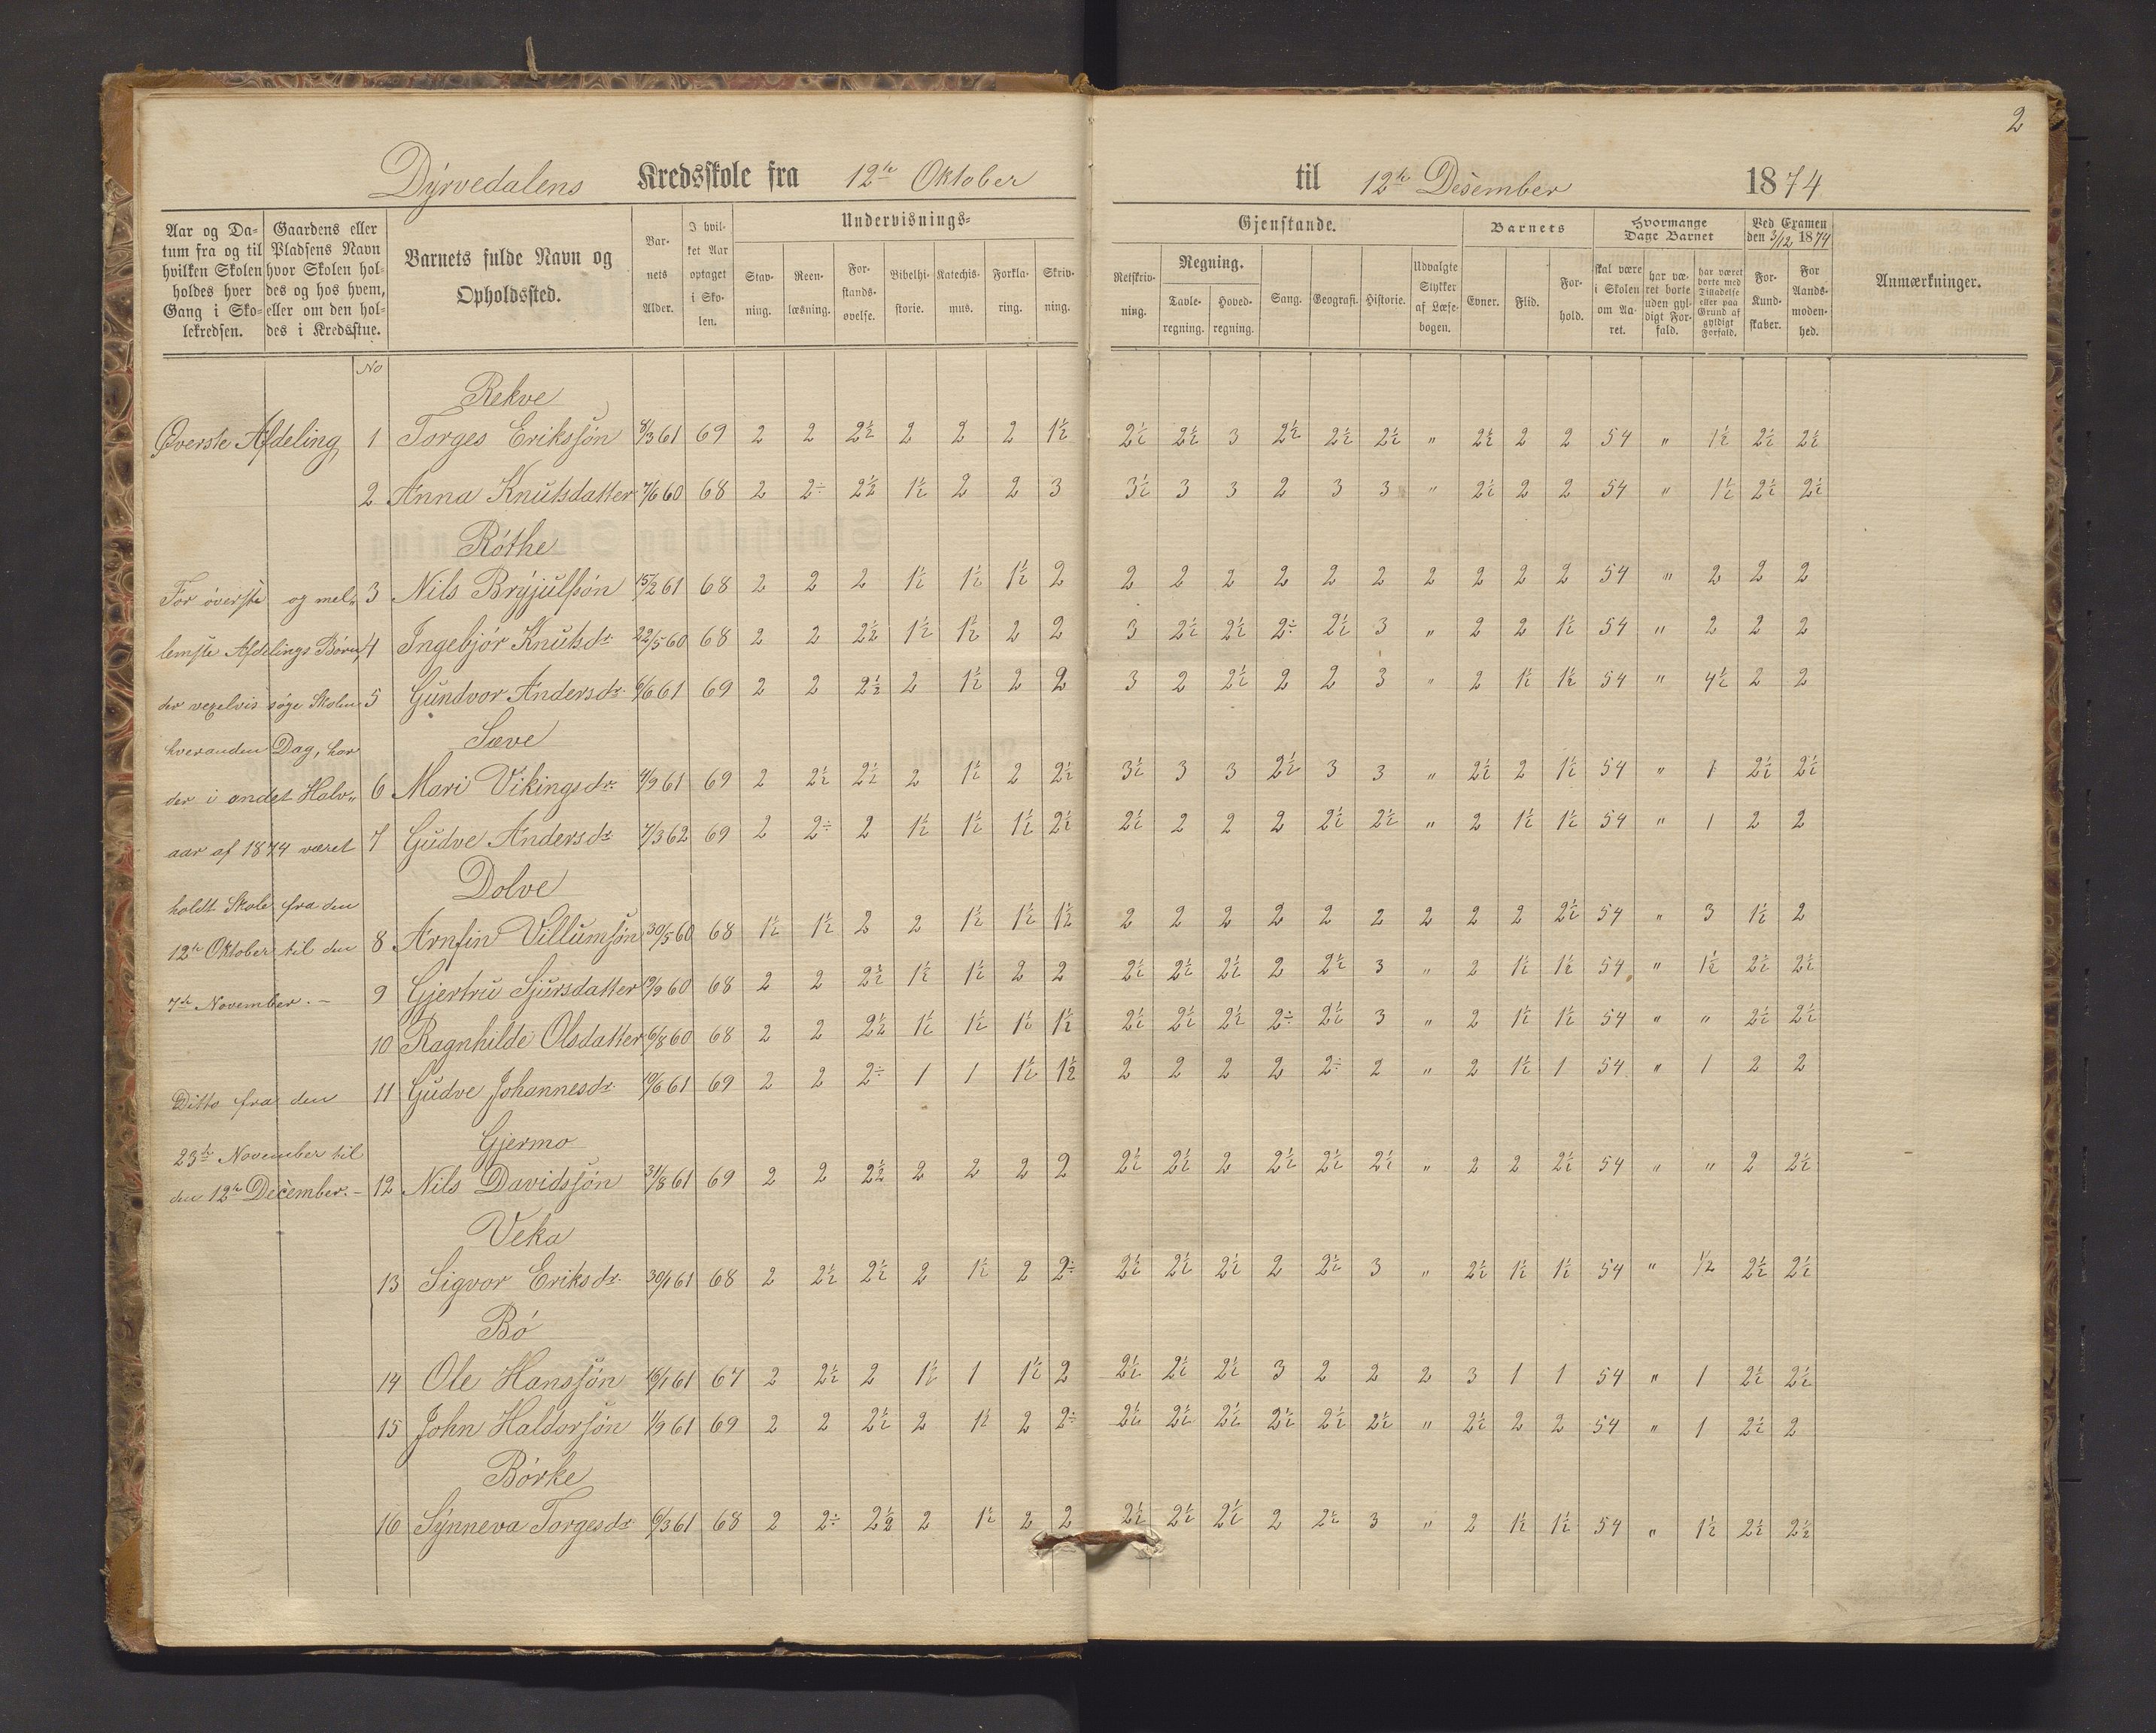 2
Dyrvedalens Kredsskole fra 12te Oktober til 12te Desember 1874
Aar og Da-tum fra og til hvilken Skolen holdes hver Gang i Sko-lekredsen.
Gaardens eller Pladsens Navn hvor Skolen hol-des og hos hvem, eller om den hol-des i Kredsstue.
Barnets fulde Navn og Opholdssted.
Bar-nets Alder.
I hvil-ket Aar optaget i Sko-len.
Undervisnings-
Stav-ning.
Reen-læsning.
For-stands-øvelse.
Bibelhi-storie.
Katechis-mus.
Forkla-ring.
Skriv-ning.
Gjenstande.
Retskriv-ning.
Regning.
Tavle-regning.
Hoved-regning.
Sang.
Geografi.
Historie.
Udvalgte Stykker af Læse-bogen.
Barnets
Evner.
Flid.
For-hold.
Hvormange Dage Barnet
skal være i Skolen om Aa-ret.
har væ-ret borte uden gyl-digt For-fald.
har været borte med Tilladelse eller paa Grund af gyldigt Forfald.
Ved Examen den 3/12 1874
For Kund-skaber.
For Aands-moden-hed.
Anmærkninger.
No
Rekve
Øverste Afdeling 1 Torges Erikssøn 8/3 61 69 2 2 2½ 2 2 2 1½ 2½ 2½ 3 2½ 2½ 2½ " 2½ 2 2 54 " 1½ 2½ 2½
2 Anna Knutsdatter 7/6 60 68 2 2÷ 2½ 1½ 2 2 3 3½ 3 3 2 3 3 " 2½ 2 2 54 " 1½ 2½ 2½
Røthe
For øverste og mel„ 3 Nils Brynjulfsøn 15/2 61 68 2 2 2 1½ 1½ 1½ 2 2 2 2 2 2 2 2 2 2 2 54 " 2 2 2
lemste Afdelings Børn, 4 Ingebjør Knutsdr. 22/5 60 68 2 2 2½ 1½ 1½ 2 2 3 2½ 2½ 2÷ 2½ 3 " 2 2 1½ 54 " 2 2 2
der vexelvis søge Skolen 5 Gundvor Andersdr. 6/6 61 69 2 2 2½ 2 1½ 2 2 3 2 2½ 2 2 3 " 2 1½ 1½ 54 " 4½ 2 2
hveranden Dag, har
Sæve
der i andet Halv„ 6 Mari Vikingsdr. 4/9 61 69 2 2½ 2½ 2 1½ 2 2½ 3½ 3 3 2½ 3 3 " 2½ 2 1½ 54 " 1 2½ 2½
aar af 1874 været 7 Gudve Andersdr. 7/3 62 69 2 2÷ 2 1½ 1½ 1½ 2½ 2½ 2 2 2 2½ 2½ " 2 1½ 1½ 54 " 1 2 2
Dolve
holdt Skole fra den
12te Oktober til den 8 Arnfin Villumsøn 30/5 60 68 1½ 1½ 2 2 1½ 1½ 1½ 2 2 2 2 2 2 2 2 2 2½ 54 " 3 1½ 2
7de November. – 9 Gjertru Sjursdatter 19/9 60 68 2 2 2½ 1½ 1½ 2 2 2½ 2½ 2½ 2 2½ 3 " 2 1½ 1½ 54 " 1½ 2½ 2½
10 Ragnhilde Olsdatter 6/8 60 68 2 2 2½ 1½ 1½ 1½ 1½ 2½ 2½ 2½ 2÷ 2½ 3 " 2 1½ 1½ 54 " " 2½ 2½
Ditto fra den 11 Gudve Johannesdr. 10/6 61 69 2 2 2÷ 1 1 1½ 1½ 2 2 2 2 2÷ 2 " 2 1½ 1 54 " 1 2 2
Gjermo
23de November til
den 12te December. – 12 Nils Davidssøn 31/8 61 69 2 2 2½ 2 2 2 2 2½ 2½ 2 2½ 2½ 2½ " 2 2 2½ 54 " " 2 2½
Veka
13 Sigvor Eriksdr. 30/1 61 68 2 2½ 2½ 2 1½ 2 2÷ 2½ 2½ 2½ 2 2½ 3 " 2½ 1½ 1½ 54 " ½ 2½ 2½
Bø
14 Ole Hanssøn 16/1 61 67 2 2½ 2 1½ 1 1½ 2 2½ 2½ 2½ 3 2 2 2 3 1 1 54 " 1 2½ 2½
15 John Haldorsøn 1/9 61 69 2 2 2½ 2 1½ 2 2÷ 2½ 2½ 2½ 2½ 2½ 2½ " 2½ 2 2 54 " 1 2½ 2
Børke
16 Synneva Torgesdr. 6/3 61 68 2 2÷ 2½ 2 1½ 2 2 2½ 2½ 2½ 2 2½ 3 " 2 1½ 1½ 54 " 1½ 2½ 2½